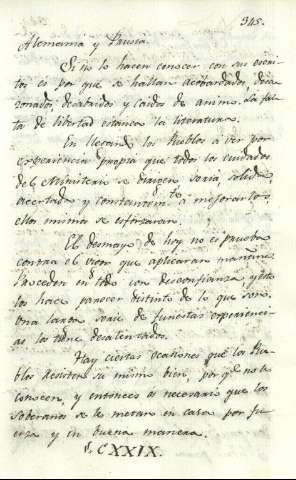 345.
Alemania y Prusia.
Si no lo hacen conocer con sus escri-
tos es por que se hallan acobardados, 
zonados, decaidos y caidos de animo. La fal-
ta de libertad estanca la literatura.
En llegando los Pueblos a ver por
experiencia propia que todos los cuidados
del Ministerio se dirigen seria, solida,
acertada y constantemte. á mejorarlos
ellos mismos se esforzaran.
El desmayo de hoy no es prueba
contra el vigor que aplicaran mañana.
Proceden en todo con desconfianza y esto
los hace parecer distinto de lo que son.
Una larga serie de funestas experienci-
as los tiene desalentados.
Hay ciertas ocasiones que los Pue-
blos resisten su mismo bien, por qe. no le
conocen, y entonces es necesario que los
Soberanos se le metan en casa por fu-
erza y en buena manera.
CXXIX.